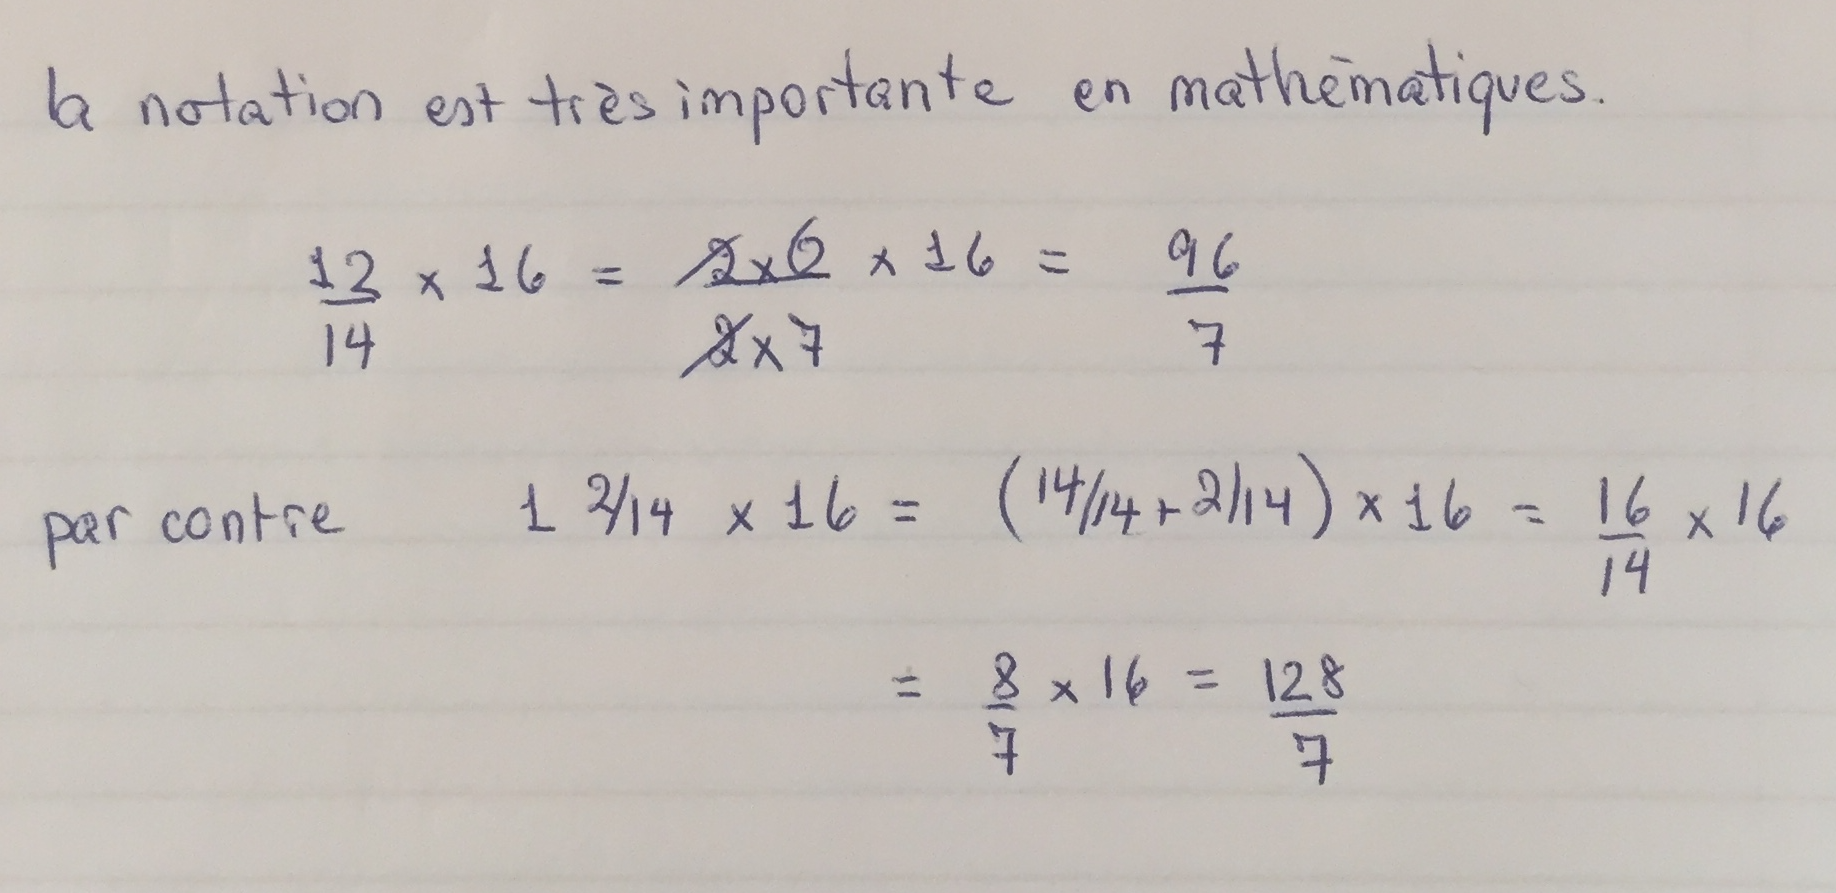 la notation est très importante en mathématiques.
12/14 x 16 = 2x6/2x7 x 16 = 96/7
par contre 1 2/14 x 16 = (14/14 + 2/14) x 16 = 16/14 x 16
= 8/7 x 16 = 128/7